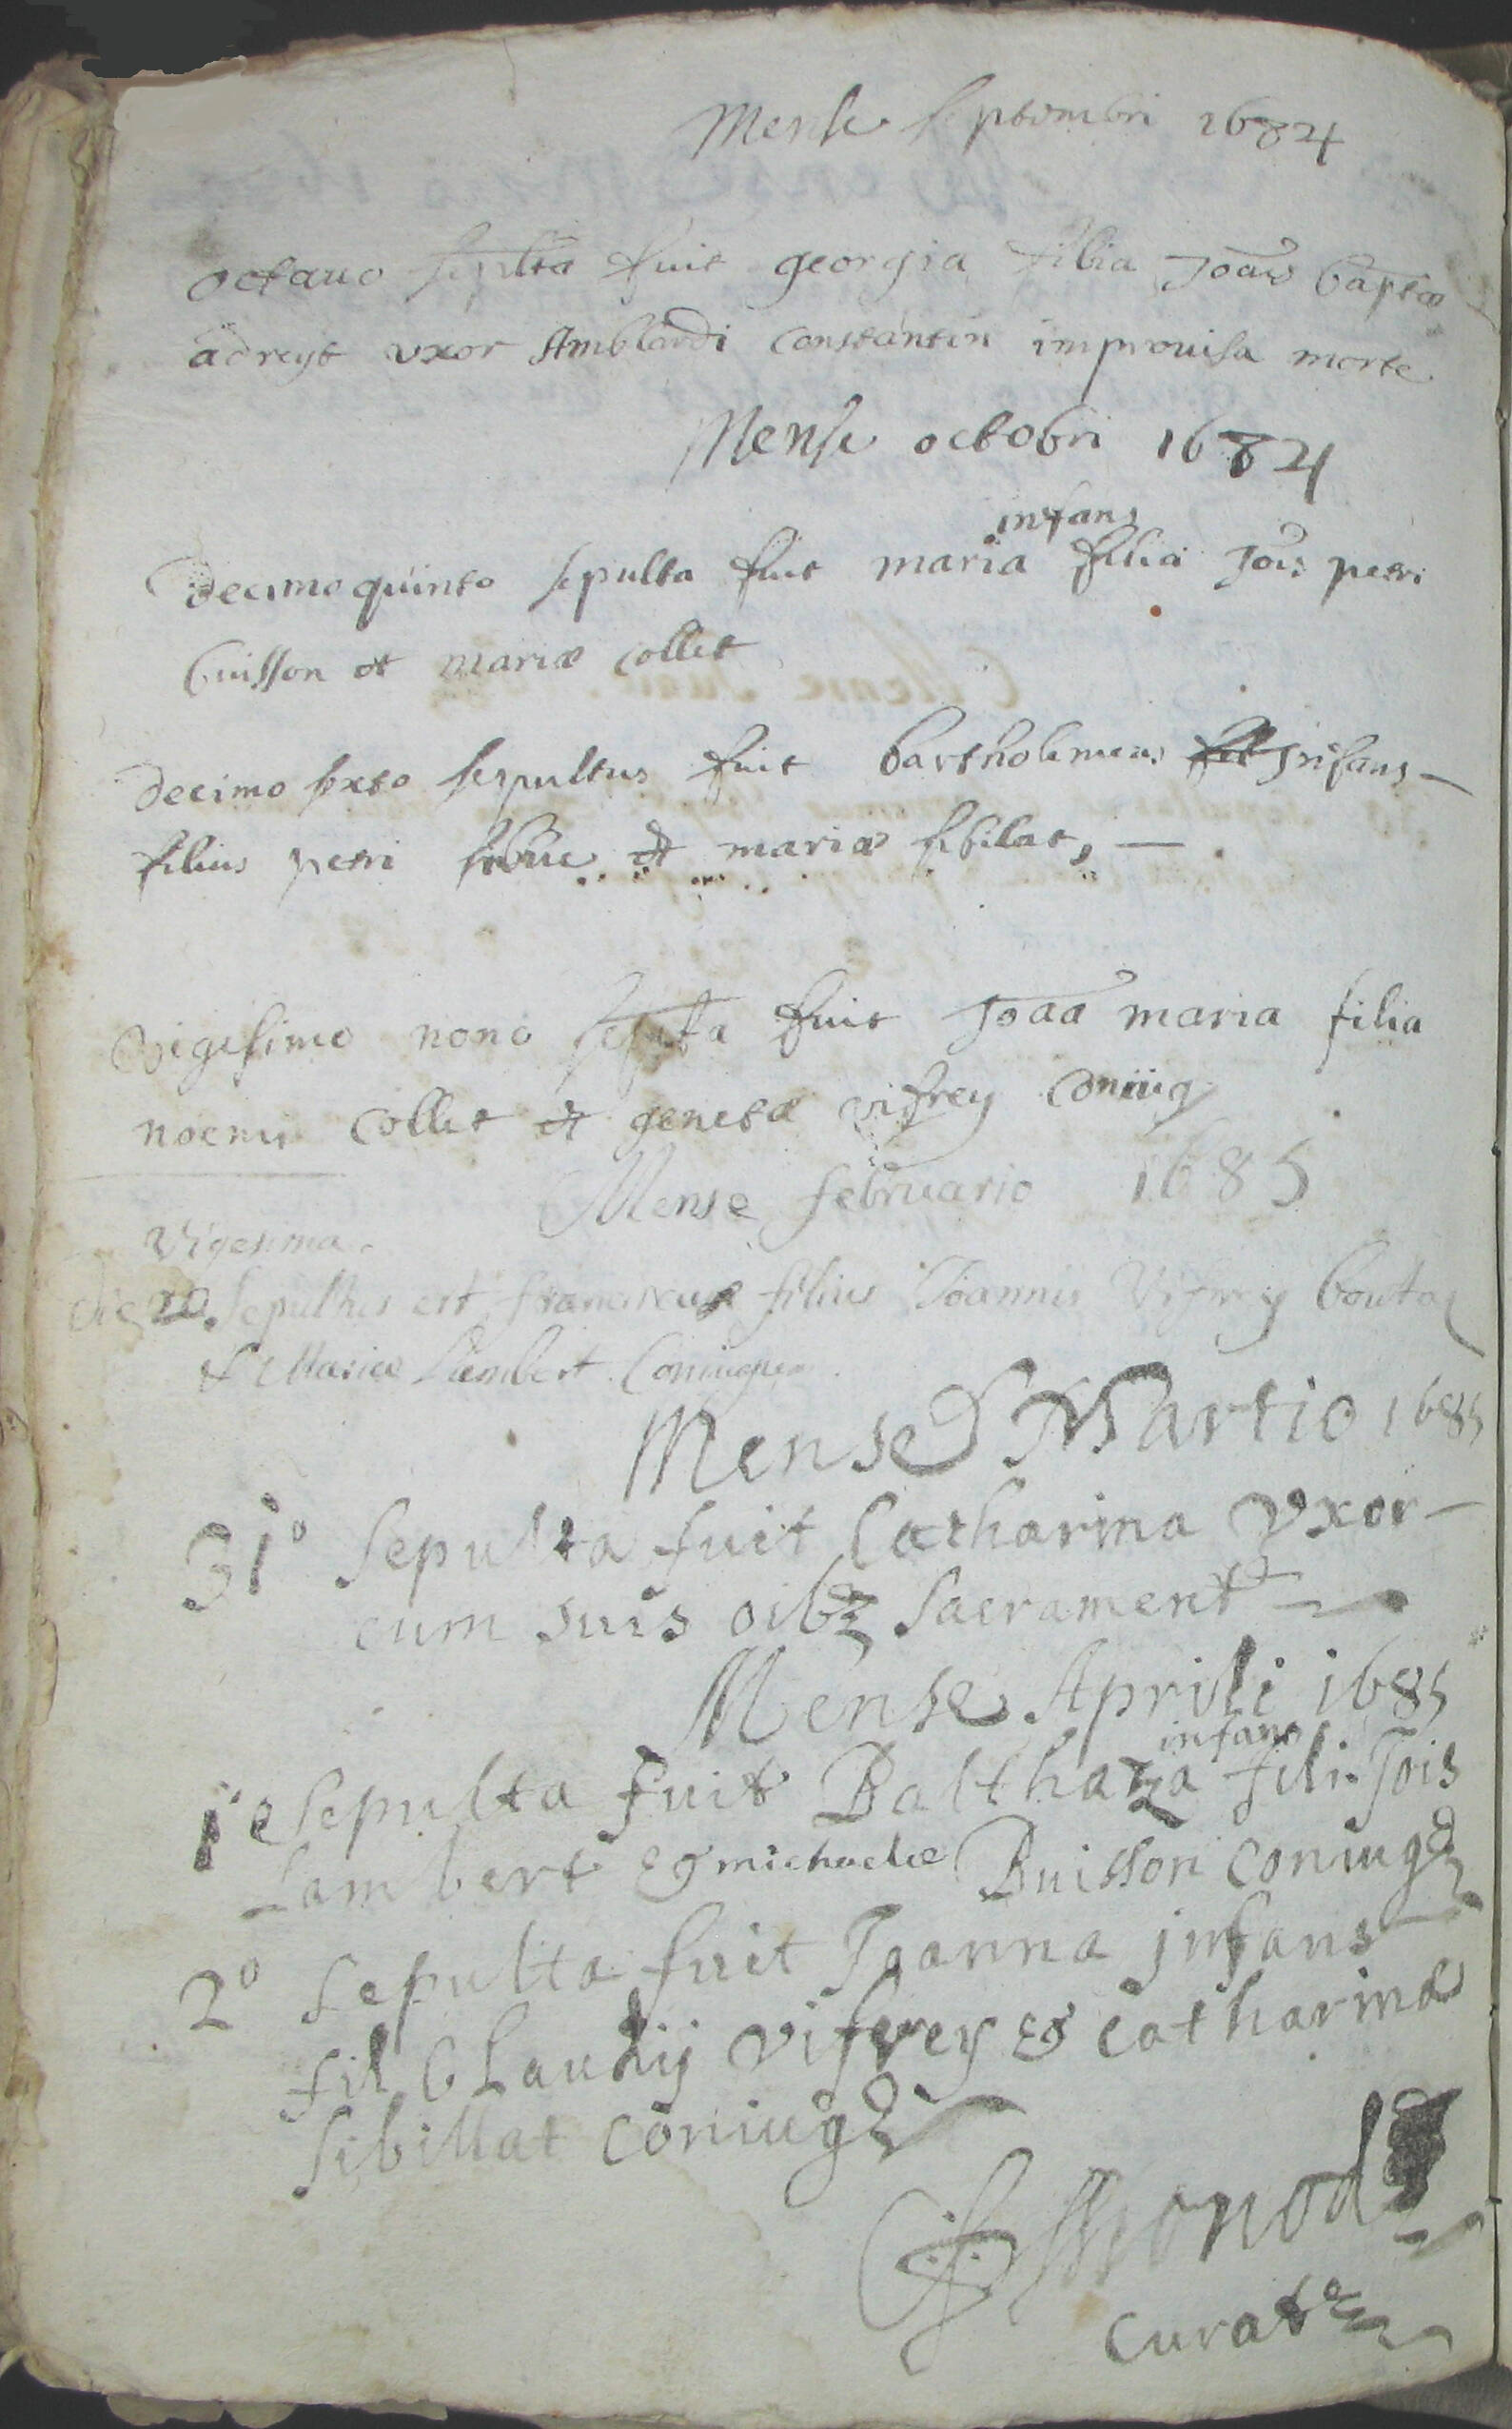 Mense septembri 1684
octauo seplta fuit georgia filia Joais baptæ
adreyt vxor Amblardi Constantin improuisa morte
Mense octobri 1684
infans
decimo quinto sepulta fuit maria filia Jois petri
buisson et mariæ collet
decimo sexto sepultus fuit bartholemeus Jnfans
filius petri et mariæ sibilat,
vigesimo nono sepulta fuit Joaa maria filia
collet et genetæ vifrey Coniug
Mense februario 1685
Vigesima
die 20 Sepultus est franciscus filius Joannis Vifrey boutaz
& Mariæ Lambert Coniugum
Mense Martio 1685
31° Sepulta fuit Catharina Vxor
cum suis oibz Sacrament
Mense Aprili 1685
infans
1e Sepulta fuit Balthaza fili Jois
Lambert & michaelæ Buisson coniug
2° Sepulta fuit Joanna jnfans
fil Claudij vifrey & catharinæ
Sibillat coniug
Monod
Curat